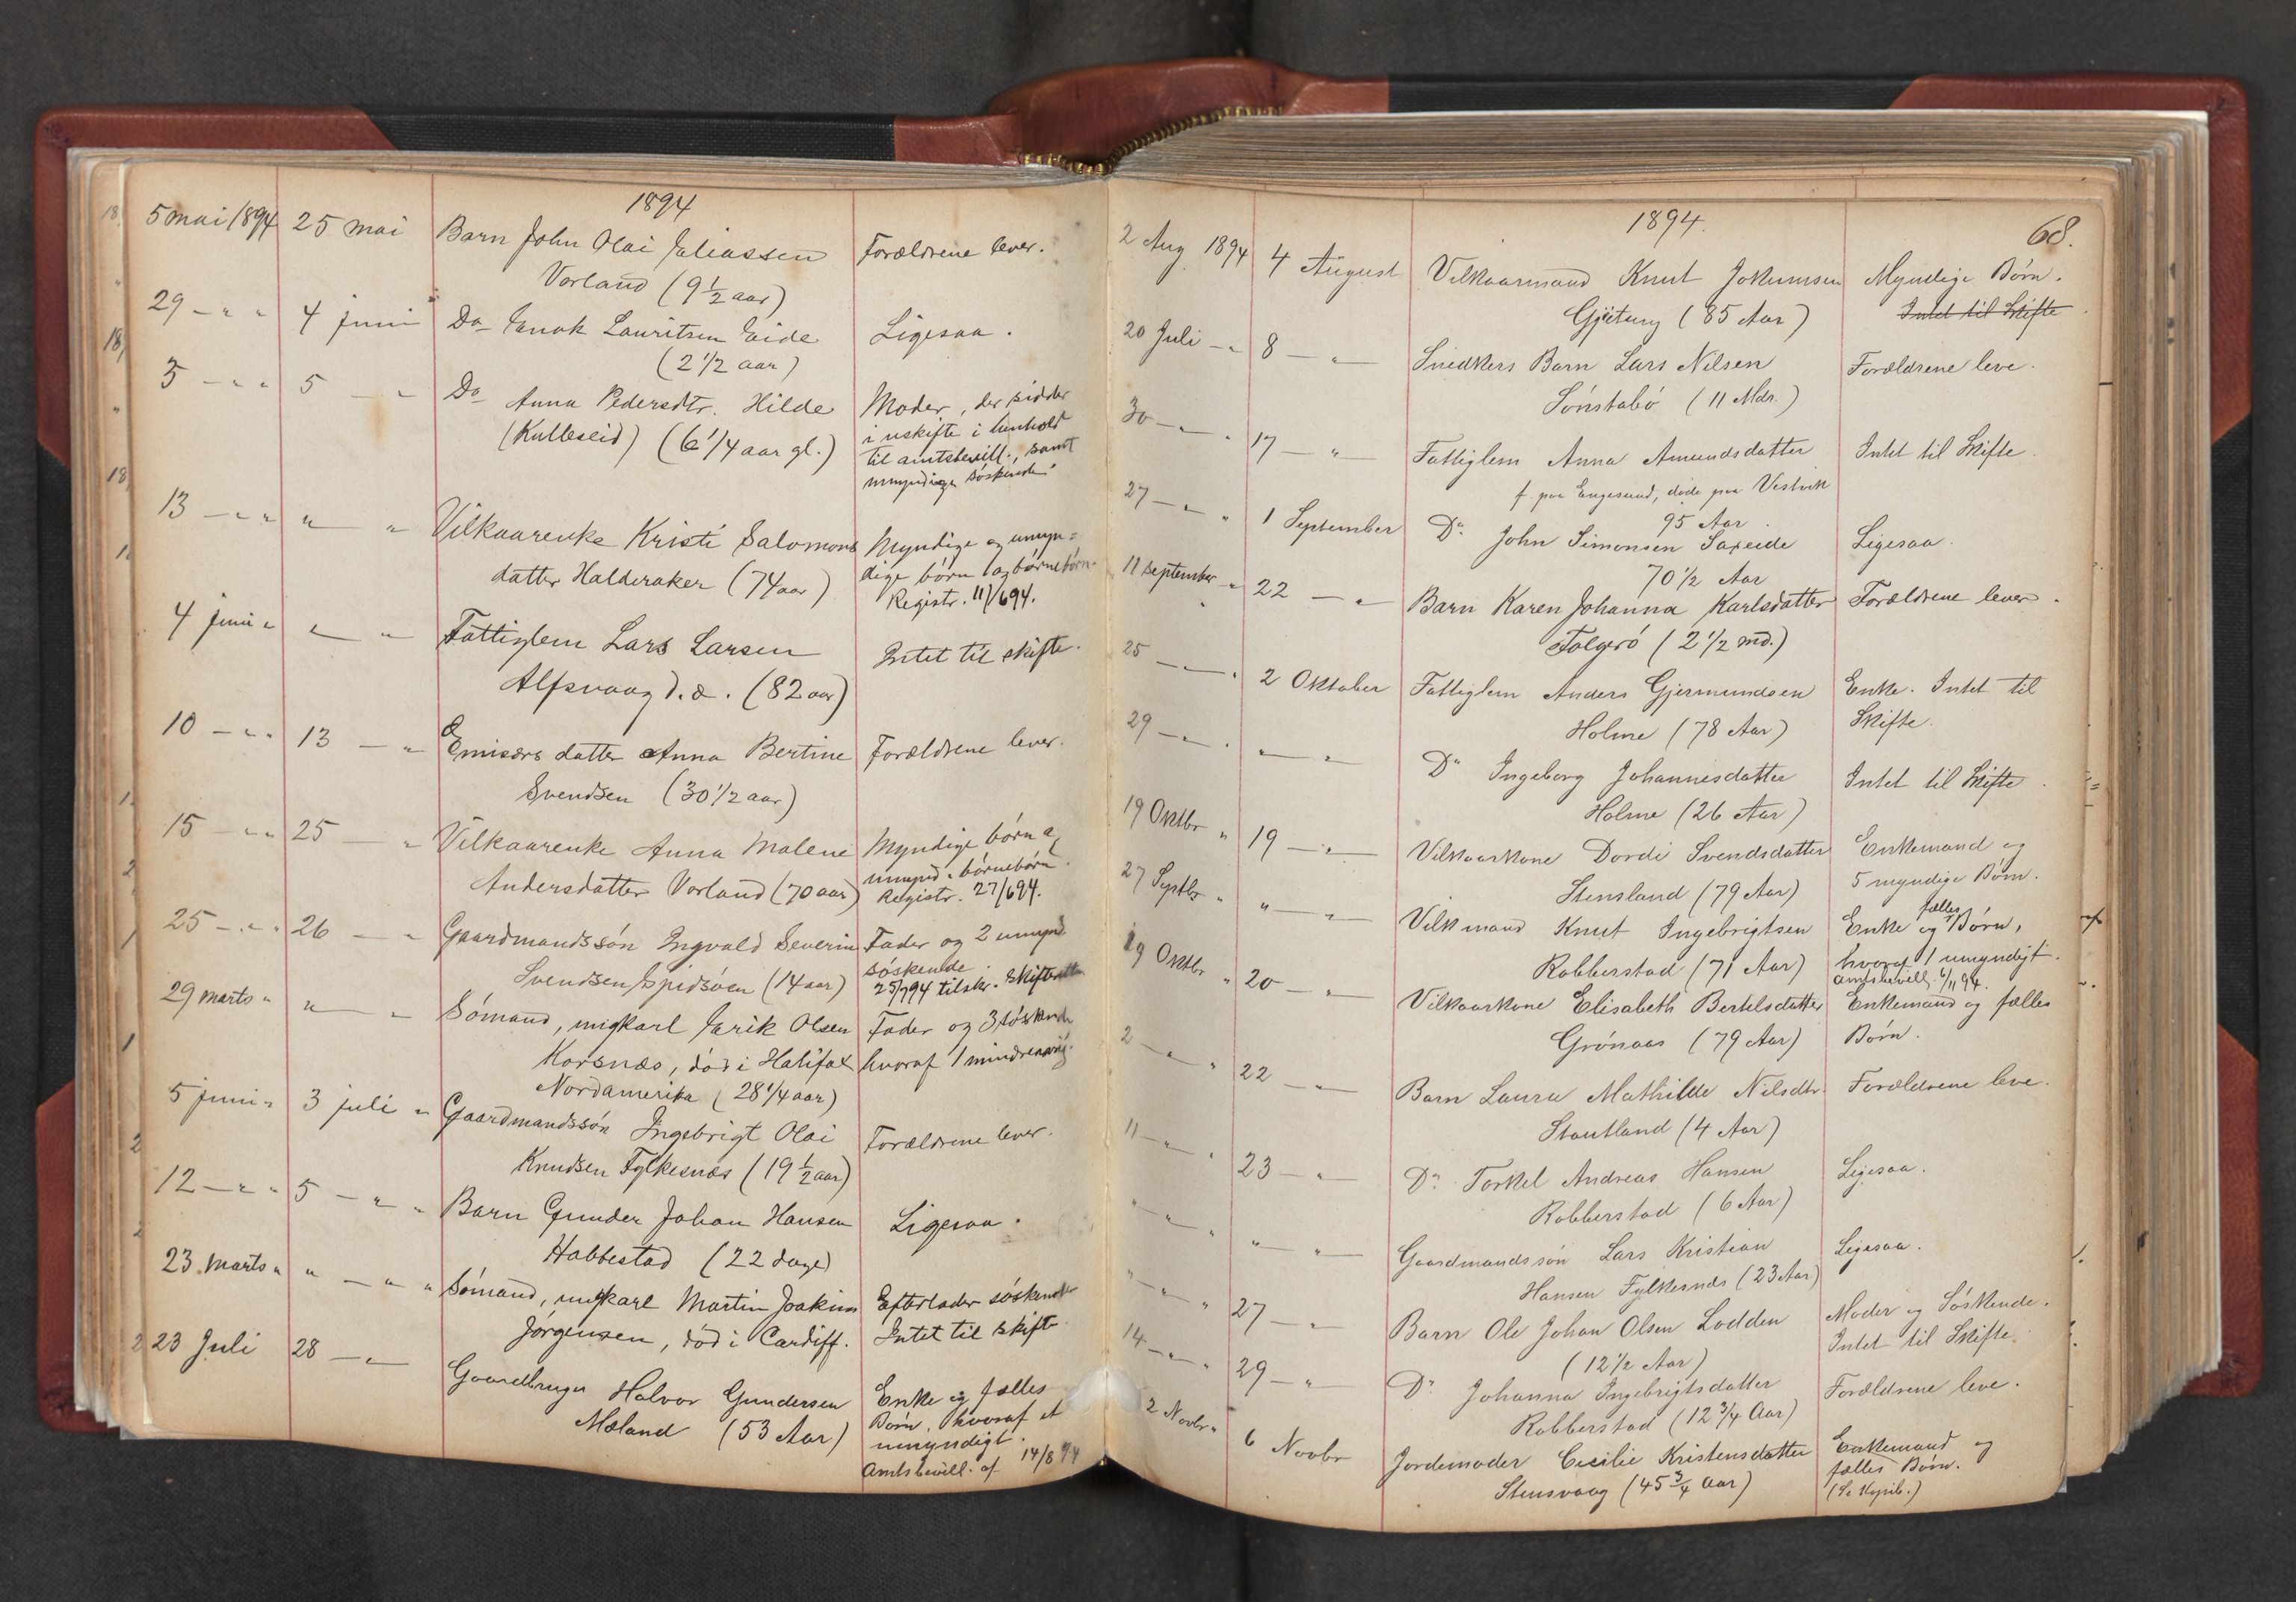 1894
5 mai 1894 25 mai Barn John Olai Eliassen Forældrene lever.
Vorland (9 1/2 aar)
29 — " " 4 juni Do Enok Lauritsen Eide Ligesaa.
(2 1/2 aar)
3 — " " 5 — " Do Anna Pedersdtr. Hilde Moder, der sidder
(Kulleseid) (6 1/4 aar gl.) i uskifte i henhold
til amtsbevill., samt
umyndige søskende.
13 — " " " — " Vilkaarenke Kristi Salomons Myndige og umyn=
datter Halderaker (74 aar) dige børn og børnebørn.
Registr. 11/6 94.
4 juni " " — " Fattiglem Lars Larsen Intet til skifte.
Alfsvaag d.æ. (82 aar)
10 — " " 13 — " Emisærs datter Anna Bertine Forældrene lever.
Svendsen (30 1/2 aar)
15 — " " 25 — " Vilkaarenke Anna Malene Myndige børn &
Andersdatter Vorland (70 aar) umynd. børnebørn.
Registr. 27/6 94.
25 — " " 26 — " Gaardmandssøn Ingvald Severin Fader og 2 umynd
Svendsen Spidsøen (14 aar) søskende.
25/7 94 tilskr. Skifteretten
29 marts " " — " Sømand, ungkarl Erik Olsen Fader og 3 søskende
Korsnæs, død i Halifax hvoraf 1 mindreaarig.
Nordamerika (28 1/4 aar)
5 juni " 3 juli " Gaardmandssøn Ingebrigt Olai Forældrene lever.
Knudsen Fylkesnæs (19 1/2 aar)
12 — " " 5 — " " Barn Gunder Johan Hansen Ligesaa.
Habbestad (22 dage)
23 marts " " — " " Sømand, ungkarl Martin Joakim Efterlader søskende
Jørgensen, død i Cardiff. Intet til skifte
23 Juli 28 — " Gaardbruger Halvor Gundersen Enke og fælles
Mæland (53 Aar) Børn, hvoraf et
umyndigt.
Amtsbevill. af 14/8 94
1894. 68.
2 Aug 1894 4 August Vilkaarmand Knut Jokumsen Myndige Børn.
Gjetung (85 Aar) Intet til Skifte
20 Juli — " 8 — " Snedkers Barn Lars Nilsen Forældrene leve.
Sønstabø (11 Mdr.)
30 — " " 17 — " Fattiglem Anna Amundsdatter Intet til Skifte.
f. paa Engesund, døde paa Vestvik
95 Aar.
27 — " " 1 September Do John Simonsen Saxeide Ligesaa.
70 1/2 Aar
11 september " 22 — " Barn Karen Johanna Karlsdatter Forældrene lever.
Folgerø (2 1/2 md.)
25 — " 2 Oktober Fattiglem Anders Gjermundsen Enke. Intet til
Holme (78 Aar) Skifte.
29 — " " — " Do Ingeborg Johannesdatter Intet til Skifte.
Holme (26 Aar)
19 Oktbr " 19 — " Vilkaarkone Dordi Svendsdatter Enkemand og
Stensland (79 Aar) 5 myndige Børn.
27 Septbr " " — " Vilkmand Knut Ingebrigtsen Enke og fælles Børn,
Robberstad (71 Aar) hvoraf 1 umyndigt.
Amtsbevill. 6/11 94.
19 Oktbr " 20 — " Vilkaarkone Elisabeth Bertelsdatter Enkemand og fælles
Grønaas (79 Aar) Børn.
2 — " " 22 — " Barn Laura Mathilde Nilsdtr. Forældrene leve.
Stautland (4 Aar)
11 — " 23 — " Do Torkel Andreas Hansen Ligesaa.
Robberstad (6 Aar)
" — " " " " — Gaardmandssøn Lars Kristian Ligesaa.
Hansen Fylkesnæs (23 Aar)
" — " " 27 — " Barn Ole Johan Olsen Lodden Moder og Søskende.
(12 1/2 Aar) Intet til Skifte.
14 — " " 29 — " Do Johanna Ingebrigtsdatter Forældrene leve.
Robberstad (12 3/4 Aar)
2 Novbr " 6 Novbr Jordemoder Cecilie Kristensdatter Enkemand og
Stensvaag (45 3/4 aar) fælles Børn.
(Se Kopib.)